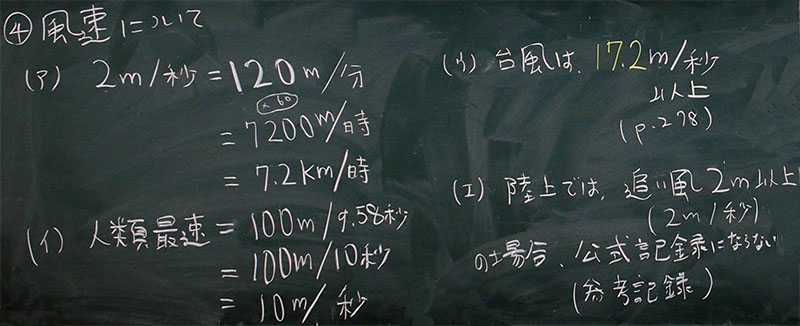 ④風速について
(ア) 2m/秒=120m/分
×60
=7200m/時
=7.2Km/時
(イ) 人類最速=100m/9.58秒
=100m/10秒
=10m/秒
(ウ) 台風は、17.2m/秒
以上
(p.278)
(エ) 陸上では、追い風2m以上
(2m/秒)
の場合、公式記録にならない
(参考記録)